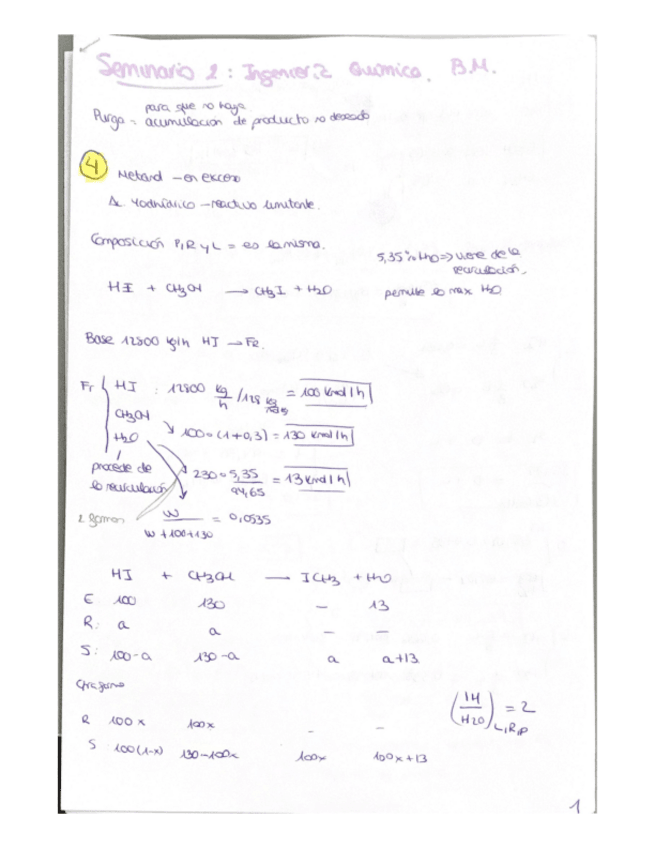 Seminario 2: Ingeniería Química. B.M.
para que no haya
Purga = acumulación de producto no deseado
4
Metanol - en exceso
Ác yodhídrico - reactivo limitante.
Composición P, R y L = es la misma.
5,35% H2O => viene de la
recirculación.
HI + CH3OH → CH3I + H2O
permite lo max H2O
Base 12800 kg/h HI → Fr.
Fr { HI : 12800 kg/h / 128 kg/kmol = 100 kmol/h
CH3OH ↘ 100 · (1+0,3) = 130 kmol/h
H2O
procede de
la recirculación
230 · 5,35/94,65 = 13 kmol/h
2 formas
W/(W+100+130) = 0,0535
HI + CH3OH — ICH3 + H2O
E 100 130 - 13
R: a a - -
S: 100-a 130-a a a+13
Otra forma
(IH/H2O) L,R,P = 2
R 100x 100x - -
S 100(1-x) 130-100x 100x 100x+13
1